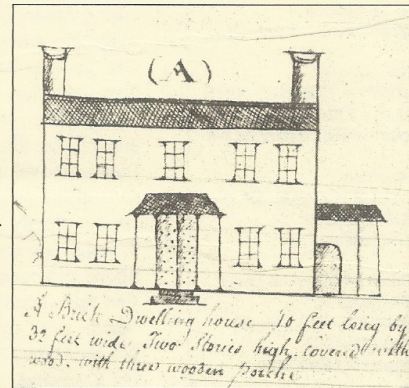 (A)
A Brick Dwelling house 40 feet long by
32 feet wide, Two Stories high, covered with
wood, with three wooden Porche